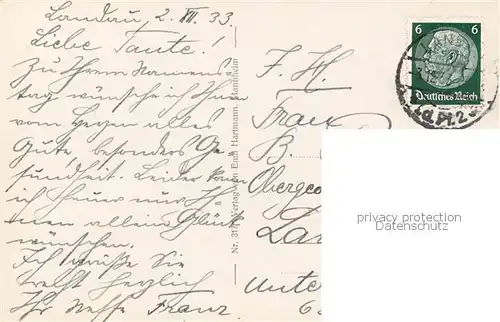 Landau, 2. VII. 33.
Liebe Tante!
Zu Ihrem Namens-
tag wünsche ich Ihnen
vom Herzen alles
Gute, besonders Ge-
sundheit. Leider kann
ich heuer nur Ih-
nen allein Glück
wünschen.
Ich grüße Sie
recht herzlich
Ihr Neffe Franz.
Verlag von Emil Hartmann, Mannheim
F. H.
Frau
B.
Oberge
La
Unte
6
6 6
Deutsches Reich
LAND
(Pf.) 2
privacy protection
Datenschutz